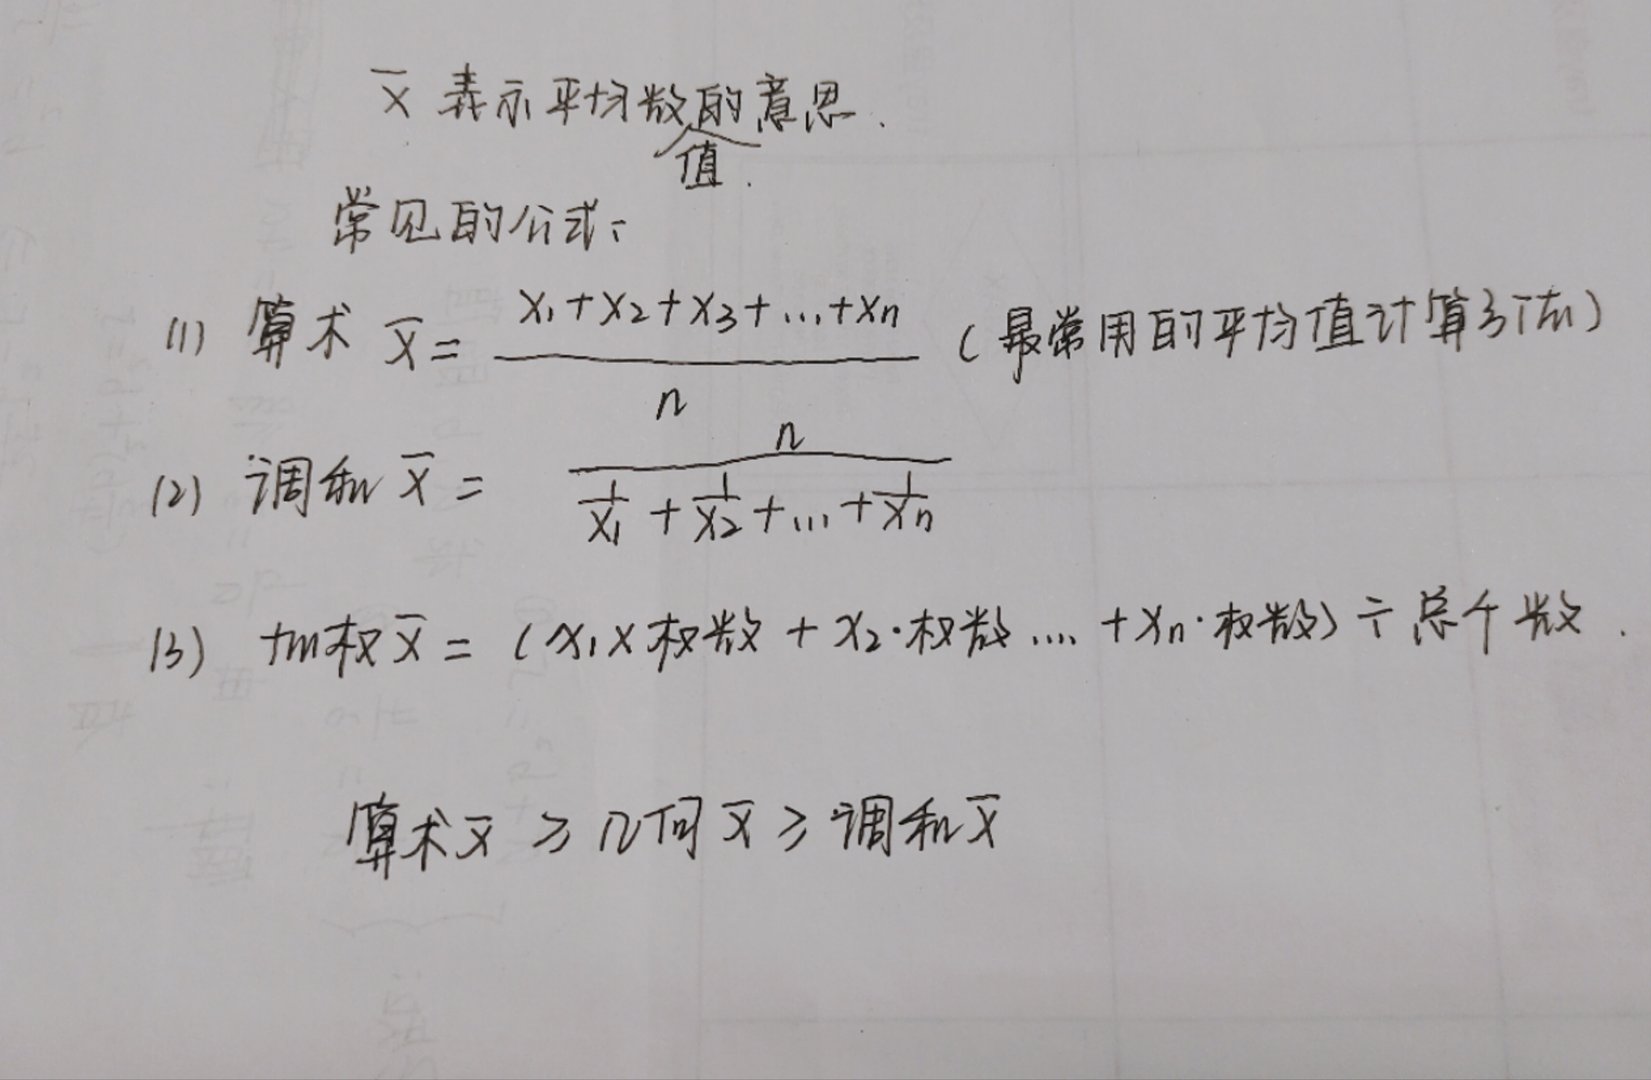 x̄ 表示平均数的意思.
值.
常见的公式:
(1) 算术 x̄ = (x₁+x₂+x₃+...+xₙ)/n (最常用的平均值计算)
(2) 调和 x̄ = n/(1/x₁ + 1/x₂ + ... + 1/xₙ)
(3) 加权 x̄ = (x₁×权数 + x₂·权数 .... + xₙ·权数) ÷ 总个数.
算术 x̄ ≥ 几何 x̄ ≥ 调和 x̄